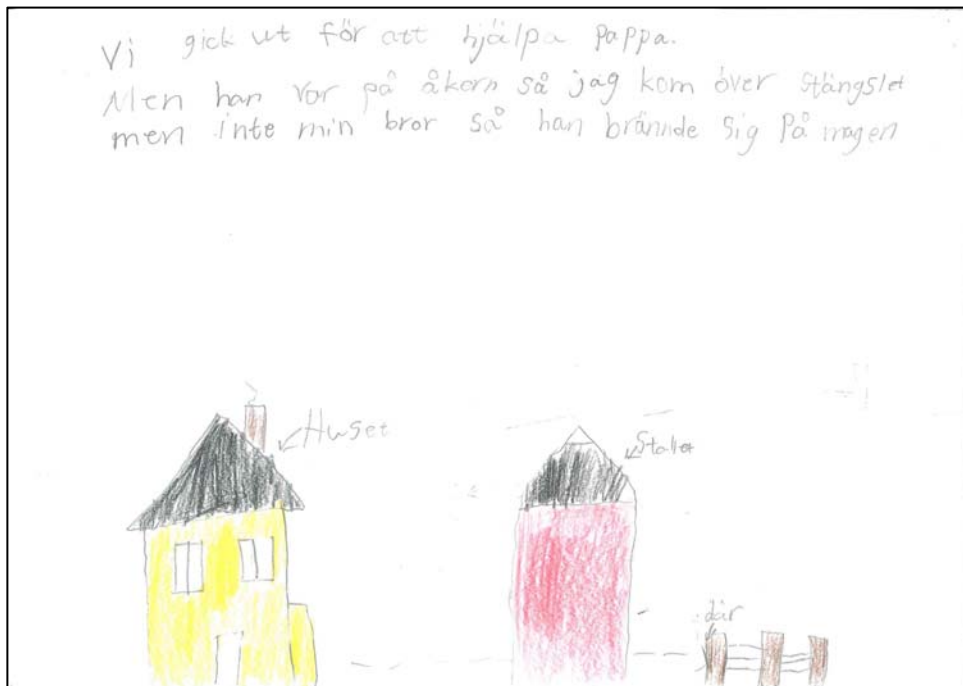 Vi gick ut för att hjälpa pappa.
Men han var på åkorn så jag kom över stängslet
men inte min bror så han brännde sig på magen
Huset
Stallet
där